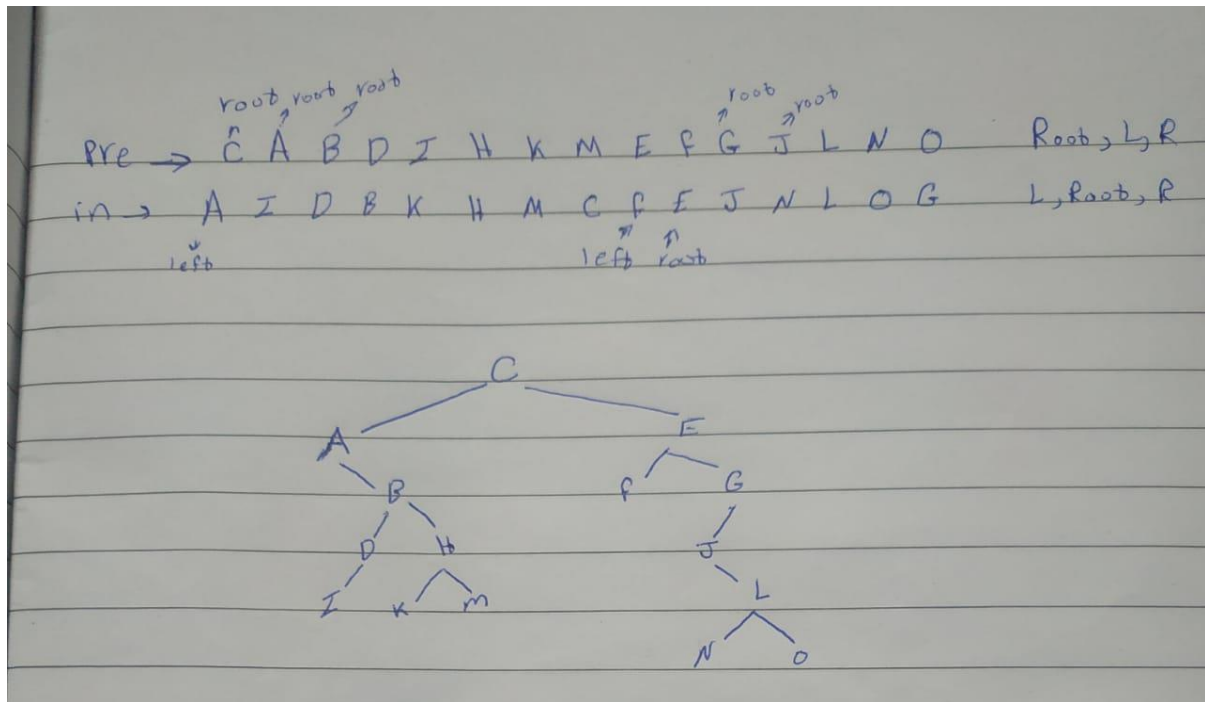 root root root root root
Pre → C A B D I H K M E F G J L N O Root, L, R
in → A I D B K H M C F E J N L O G L, Root, R
left left root
C
A E
B F G
D H J
I K M L
N O